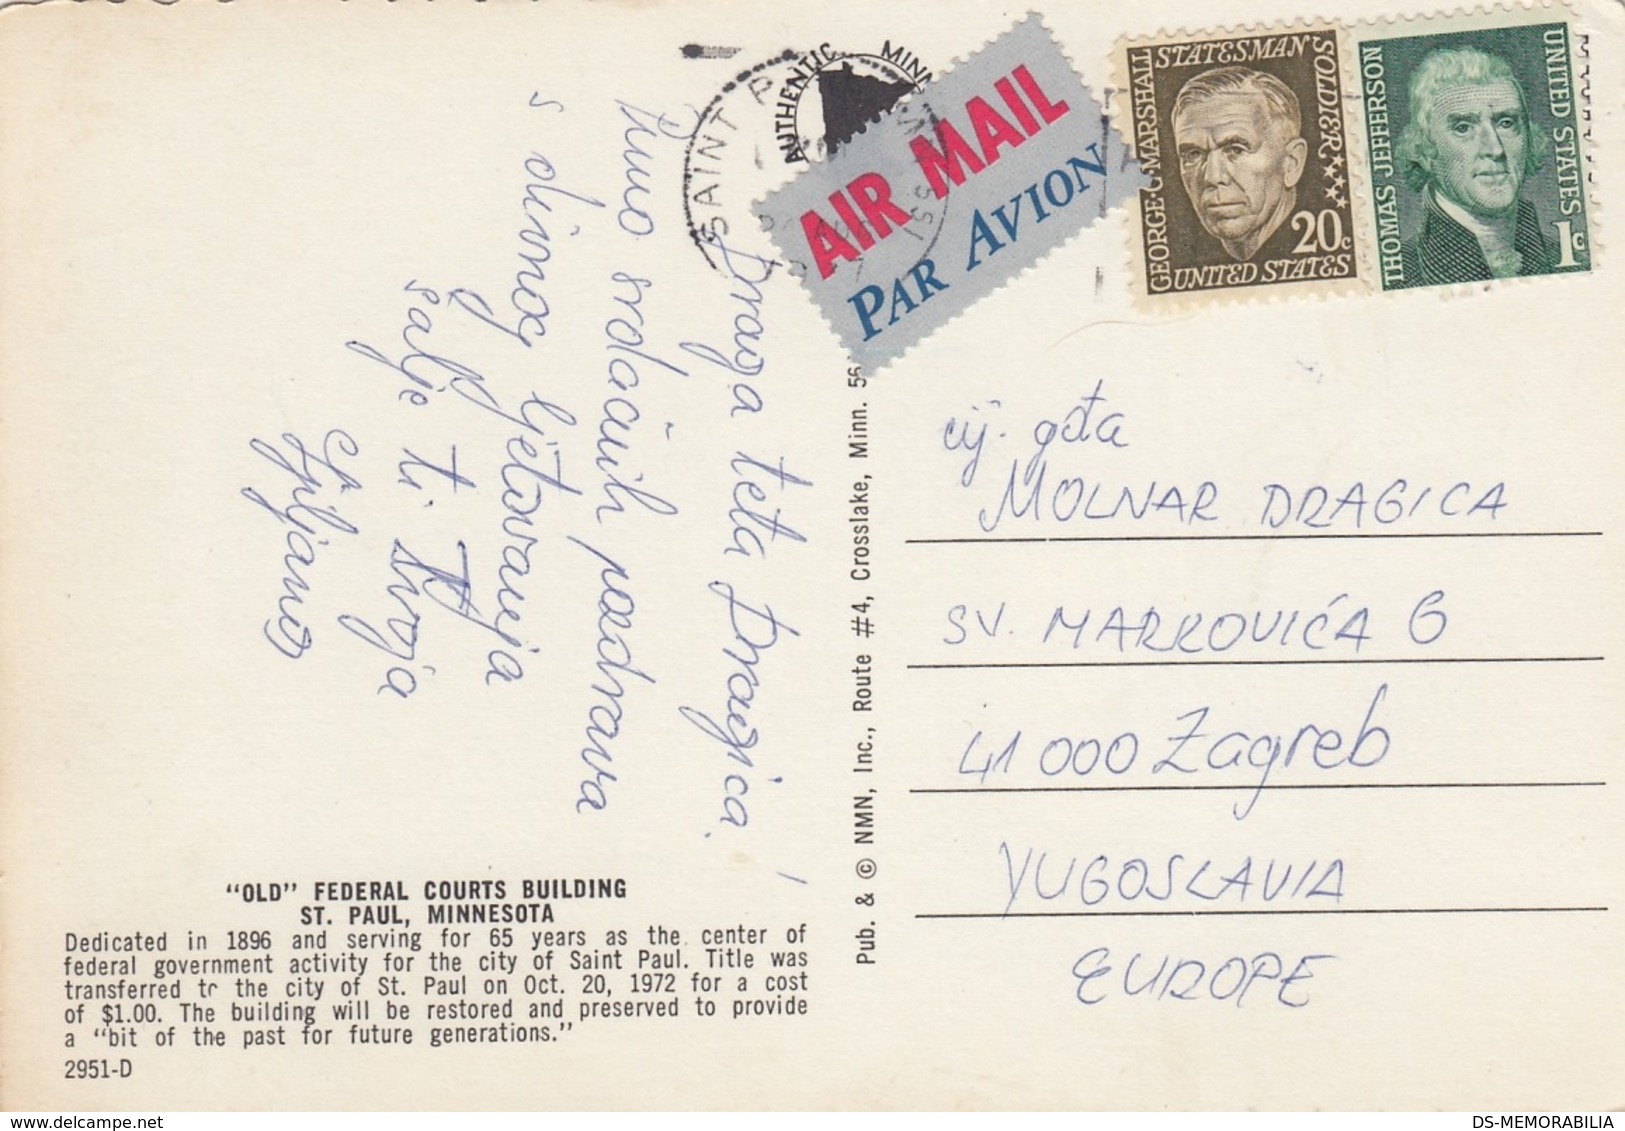 Draga teta Dragica!
Puno srdačnih pozdrava
s divnog ljetovanja
šalje ti svoja
Ljiljana
"OLD" FEDERAL COURTS BUILDING
ST. PAUL, MINNESOTA
Dedicated in 1896 and serving for 65 years as the center of
federal government activity for the city of Saint Paul. Title was
transferred to the city of St. Paul on Oct. 20, 1972 for a cost
of $1.00. The building will be restored and preserved to provide
a "bit of the past for future generations."
2951-D
Pub. & © NMN, Inc., Route #4, Crosslake, Minn. 56
SAINT P
AUTHENTIC MINN
AIR MAIL
PAR AVION
GEORGE C. MARSHALL
STATESMAN SOLDIER
20c
UNITED STATES
THOMAS JEFFERSON
UNITED STATES
1c
cij. gđa
MOLNAR DRAGICA
SV. MARKOVIĆA 6
41 000 Zagreb
YUGOSLAVIA
EUROPE
DS-MEMORABILIA